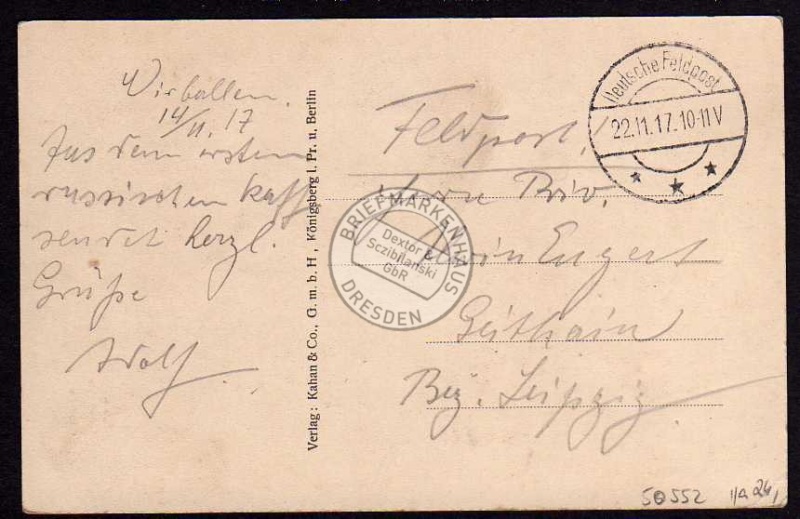 Wirballen.
14/11.17
Aus dem ersten
russischen Kaff
sendet herzl.
Grüße
Adolf.
Verlag: Kahan & Co., G. m. b. H., Königsberg i. Pr. u. Berlin
Feldpost!
Deutsche Feldpost
22.11.17.10-11V
Herrn Priv.
Engert
Geithain
Bez. Leipzig.
BRIEFMARKENHAUS
Dextor &
Sczibilanski
GbR
DRESDEN
50552